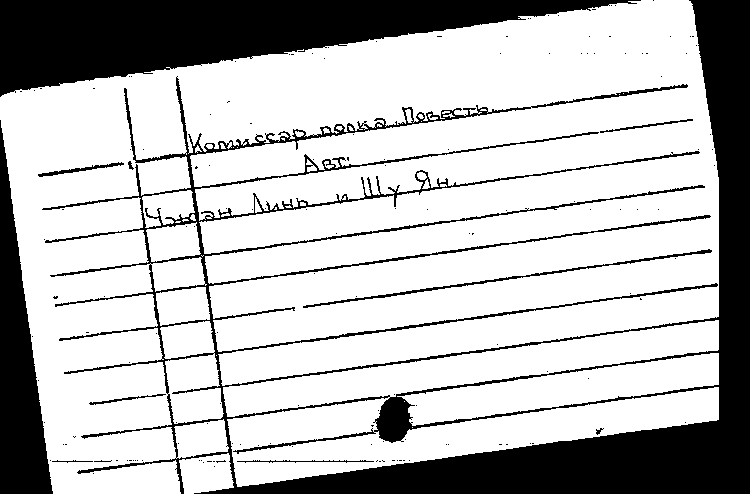 Комиссар полка. Повесть.
Авт:
Чжан Линь и Шу Ян.